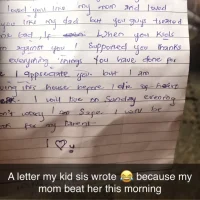 loved you like my mom and loved
you like my dad but you guys treated
me bad, if when you kids
against you I supported you thanks
everything things you have done for
I appreciate you. but I am
this house before I die of
I will live on Sunday evening
don't worry I am safe I will be
for my parent
I ♡ u
A letter my kid sis wrote 😂 because my
mom beat her this morning